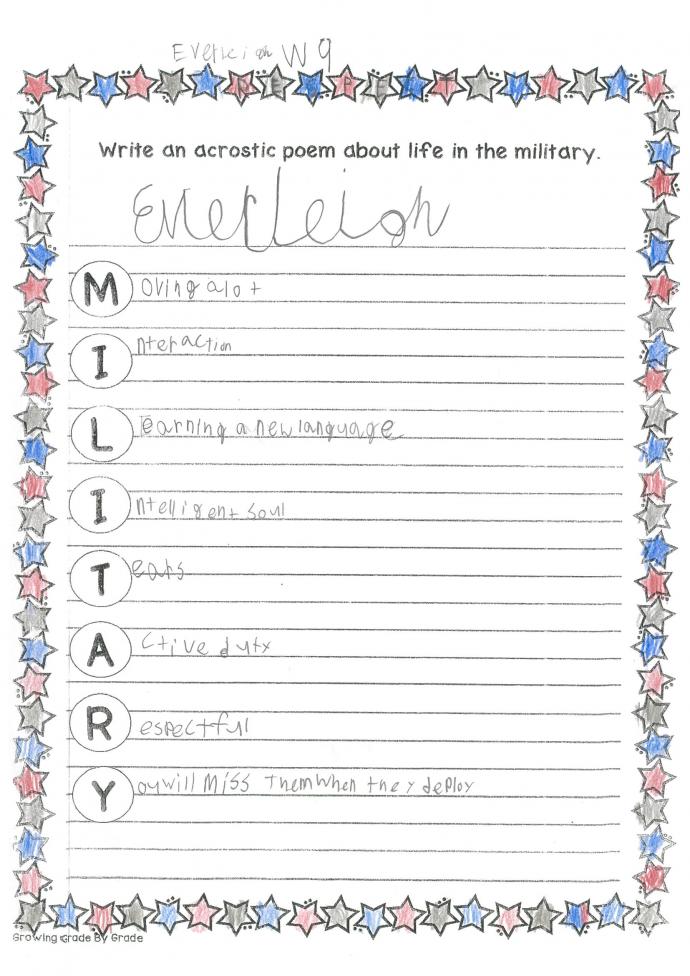 Everleigh W 9
Write an acrostic poem about life in the military.
Everleigh
Moving alot
Interaction
Learning a new language
Intelligent soul
Tears
Active duty
Respectful
You will miss them when they deploy
Growing Grade By Grade